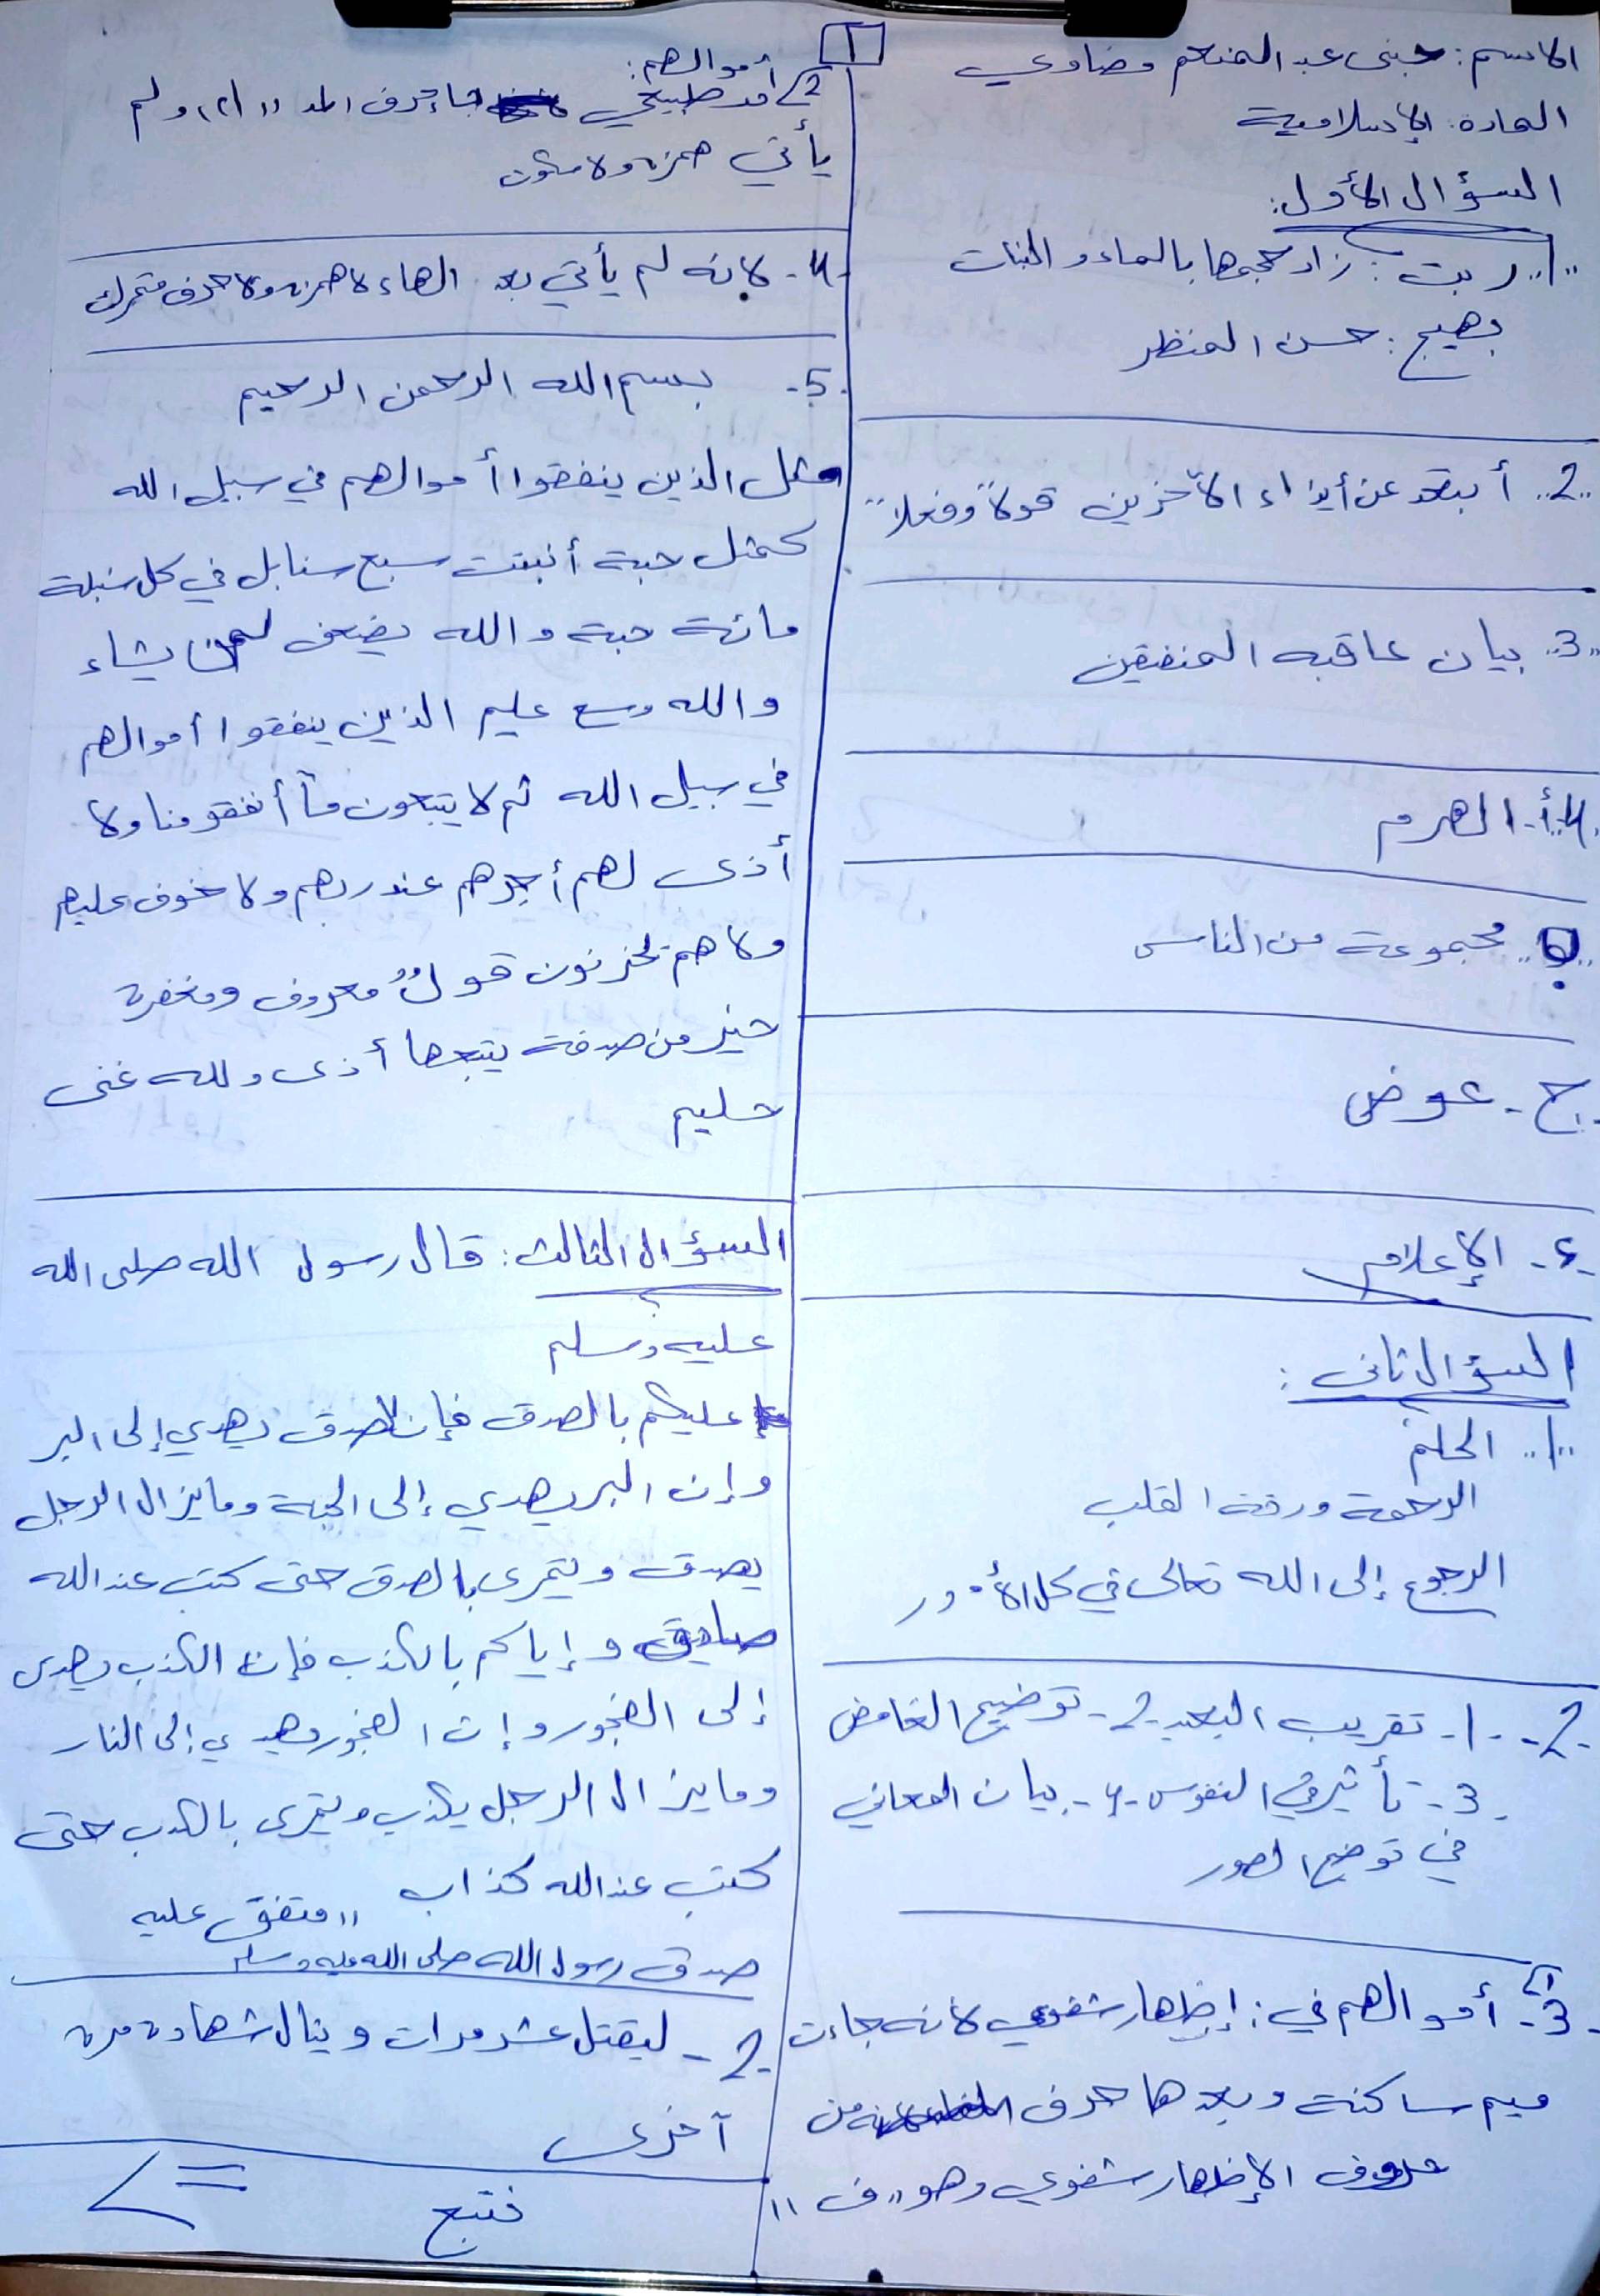 الاسم: حبنى عبد المنعم وضاوي
المادة: الإسلامية
السؤال الأول:
1.. ربت: زاد حجمها بالماء و النبات
بهيج: حسن المنظر
2.. أبتعد عن أيذاء الآخرين قولاً وفعلاً
3.. بيان عاقبه المنفقين
4.. أ- الهرم
ب.. مجموعة من الناس
ج- عوض
د- الإعلام
السؤال ثاني:
1.. الحلم
الرحمة ورقة القلب
الرجوع إلى الله تعالى في كل الأمور
2- 1- تقريب البعيد 2- توضيح الغامض
3- تأثير في النفوس 4- بيان المعاني
في توضيح الصور
3- 1 أموالهم في: إظهار شفوي لأنه جاءت
ميم ساكنة وبعدها حرف من
حروف الإظهار شفوي وهو "ف"
1
أموالهم:
2 مد طبيعي جاء حرف المد "ا" ولم
يأتي همزة ولا سكون
4- لانه لم يأتي بعد الهاء لا همزة ولا حرف متحرك
5- بسم الله الرحمن الرحيم
مثل الذين ينفقوا أموالهم في سبيل الله
كمثل حبة أنبتت سبع سنابل في كل سنبلة
مائة حبة والله يضعف لمن يشاء
والله وسع عليم الذين ينفقوا أموالهم
في سبيل الله ثم لا يتبعون مآ أنفقو منا ولا
أذى لهم أجرهم عند ربهم ولا خوف عليهم
ولا هم يحزنون قولٌ معروف ومغفرة
خير من صدقة يتبعها أذى ولله غنى
حليم
السؤال الثالث: قال رسول الله صلى الله
عليه وسلم
عليكم بالصدق فإن الصدق يهدي إلى البر
وإن البر يهدي إلى الجنة وما يزال الرجل
يصدق ويتحرى بالصدق حتى كتب عند الله
صديق وإياكم بالكذب فإن الكذب يهدى
إلى الفجور وإن الفجور يهدي إلى النار
وما يزال الرجل يكذب ويتحرى بالكذب حتى
كتب عند الله كذاب "متفق عليه
صدق رسول الله صلى الله عليه وسلم
2- ليقتل عشر مرات وينال شهادة مرة
آخرى
نتبع